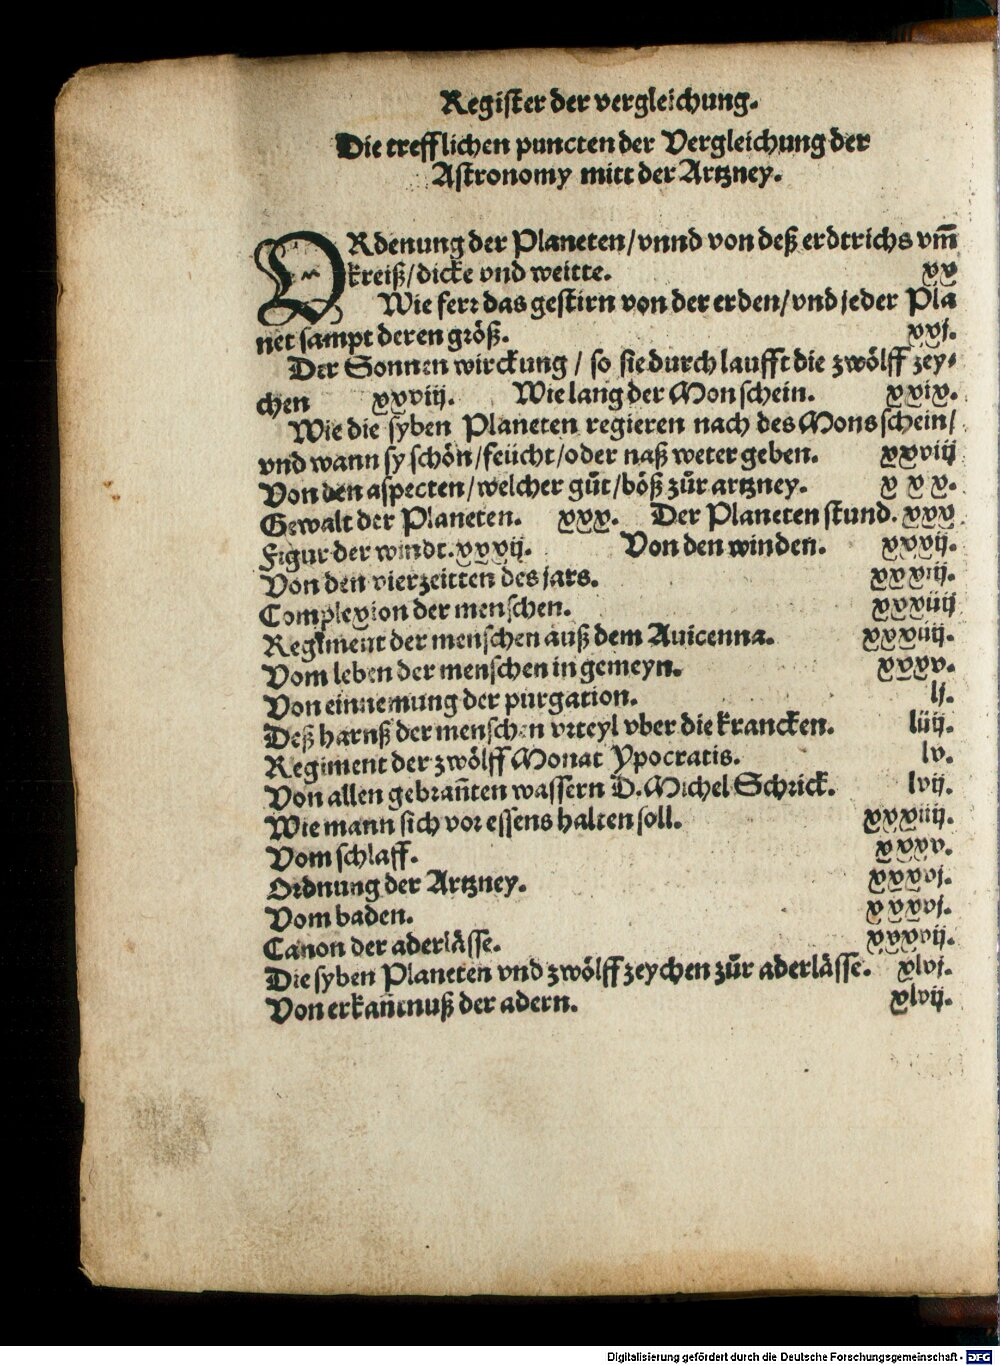 Register der vergleichung.
Die trefflichen puncten der Vergleichung der
Astronomy mitt der Artzney.
ORdenung der Planeten/vnnd von deß erdtrichs vm̃
kreiß/dicke vnd weitte. xx
Wie ferr das gestirn von der erden/vnd jeder Pla
net sampt deren größ. xxj.
Der Sonnen wirckung / so sie durch laufft die zwölff zey⸗
chen xxviij. Wie lang der Mon schein. xxix.
Wie die syben Planeten regieren nach des Mons schein/
vnd wann sy schön/feücht/oder naß weter geben. xxviij
Von den aspecten/welcher gůt/böß zůr artzney. xxx.
Gewalt der Planeten. xxx. Der Planeten stund. xxx
Figur der windt. xxxij. Von den winden. xxxij.
Von den vierzeitten des jars. xxxiij.
Complexion der menschen. xxxiiij
Regiment der menschen auß dem Auicenna. xxxiiij.
Vom leben der menschen in gemeyn. xxxv.
Von einnemung der purgation. lj.
Deß harnß der menschen vrteyl vber die krancken. liiij.
Regiment der zwölff Monat Ypocratis. lv.
Von allen gebrañten wassern D. Michel Schrick. lvij.
Wie mann sich vor essens halten soll. xxxiiij.
Vom schlaff. xxxv.
Ordnung der Artzney. xxxvj.
Vom baden. xxxvj.
Canon der aderlåsse. xxxvij.
Die syben Planeten vnd zwölff zeychen zůr aderlåsse. xlvj.
Von erkañtnuß der adern. xlvij.
Digitalisierung gefördert durch die Deutsche Forschungsgemeinschaft - DFG